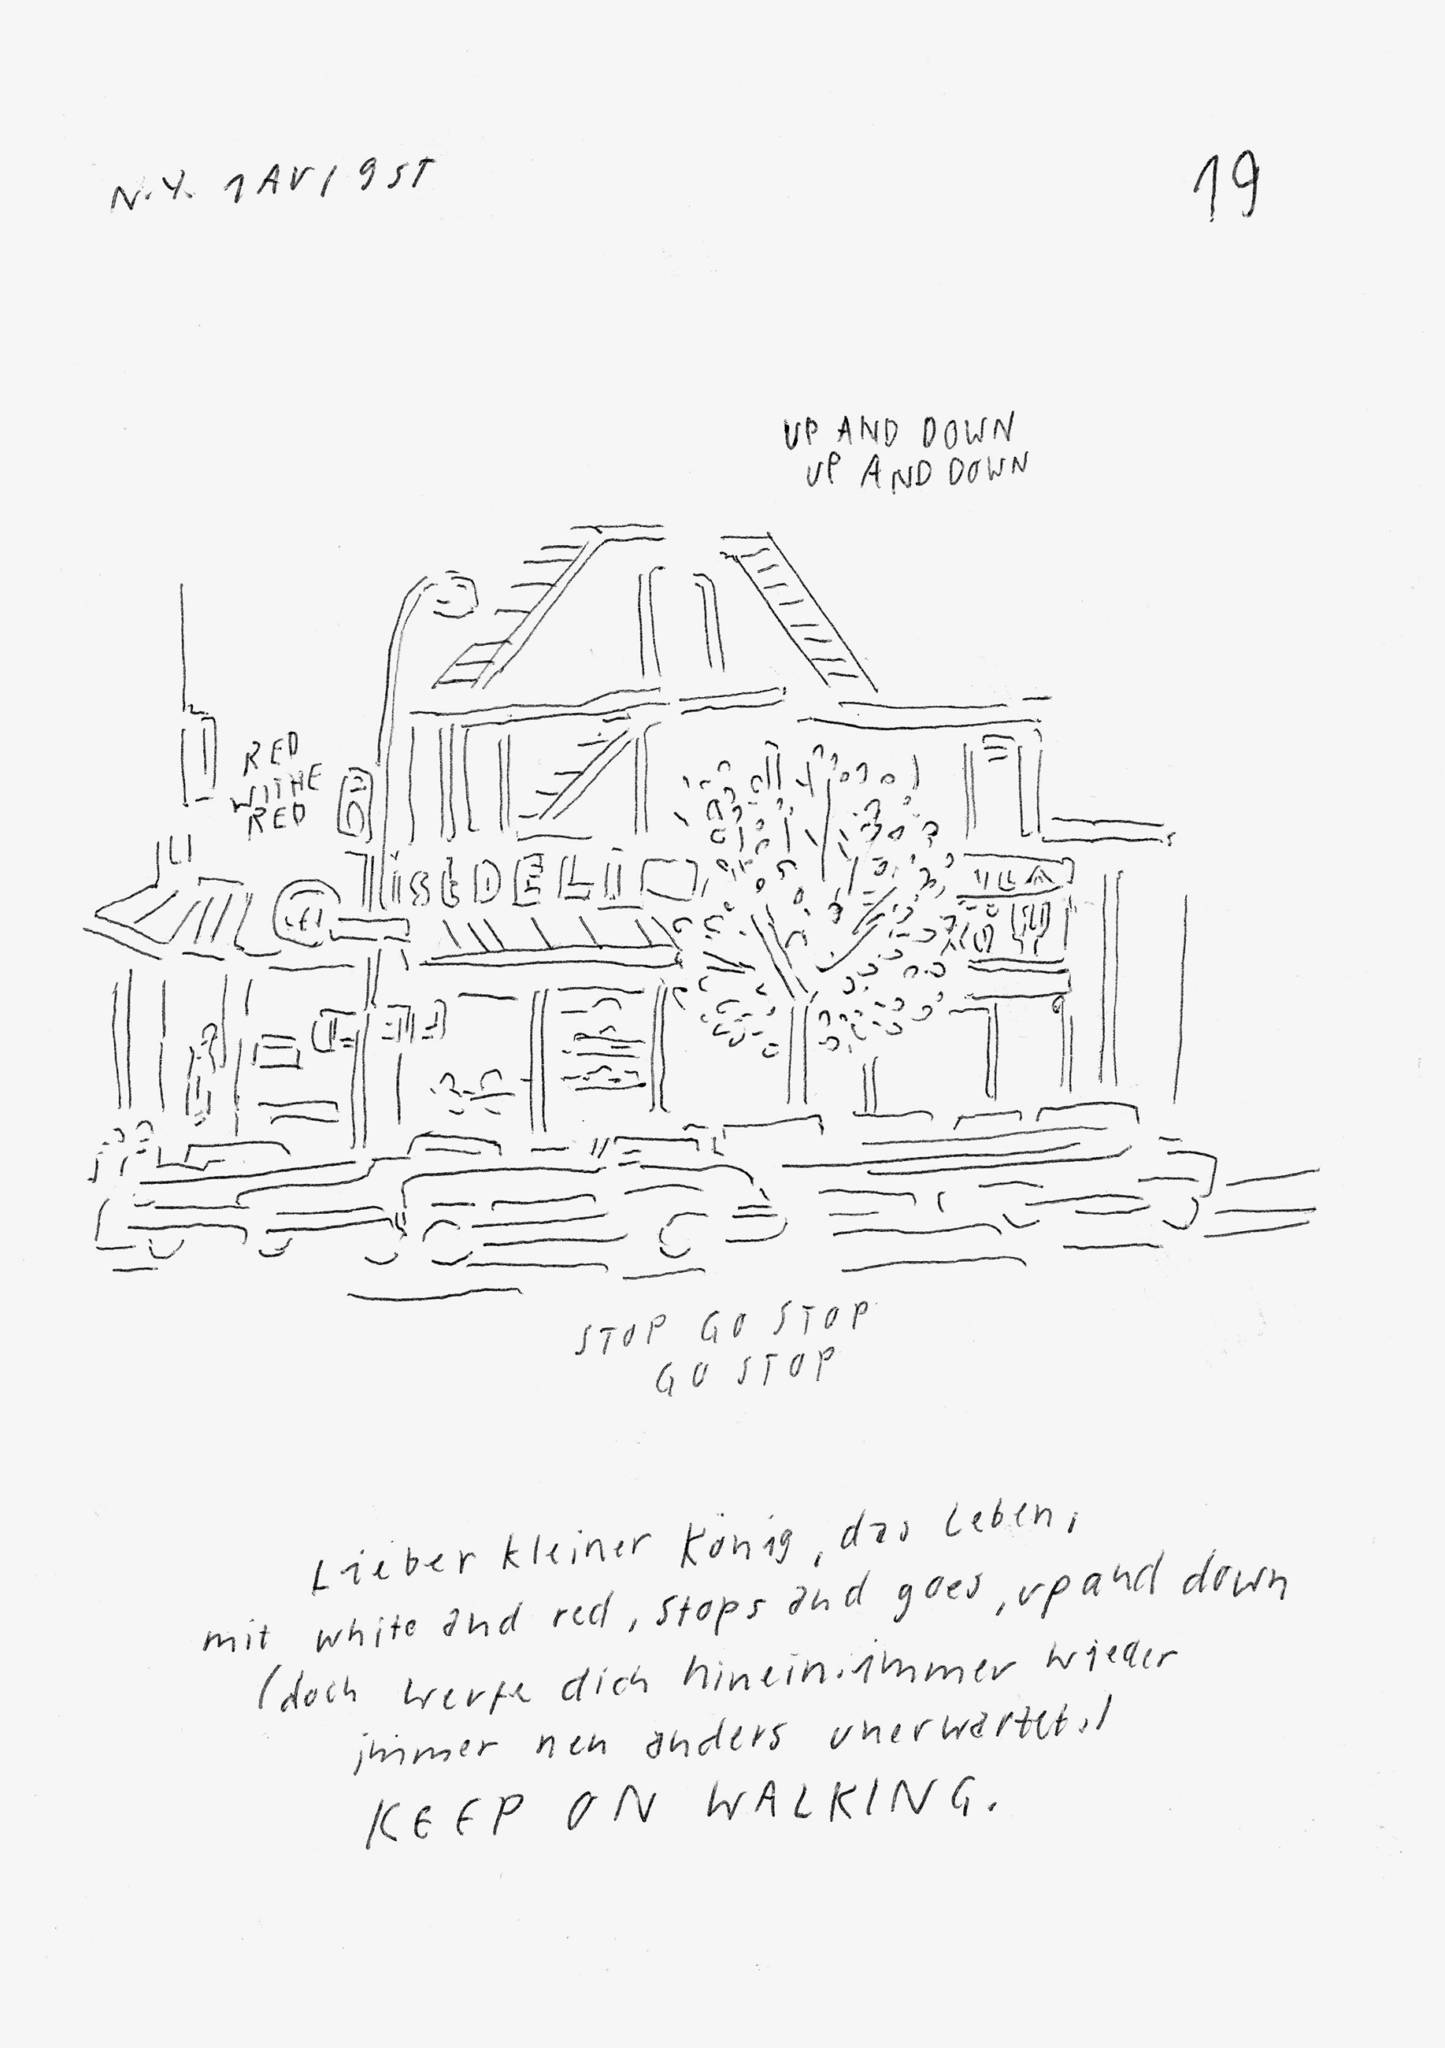 N.Y. 1 AV / 9 ST
19
UP AND DOWN
UP AND DOWN
RED
WITHE
RED
DELI
STOP GO STOP
GO STOP
Lieber kleiner König, das Leben,
mit white and red, stops and goes, up and down
(doch werfe dich hinein. immer wieder
immer neu anders unerwartet.)
KEEP ON WALKING.